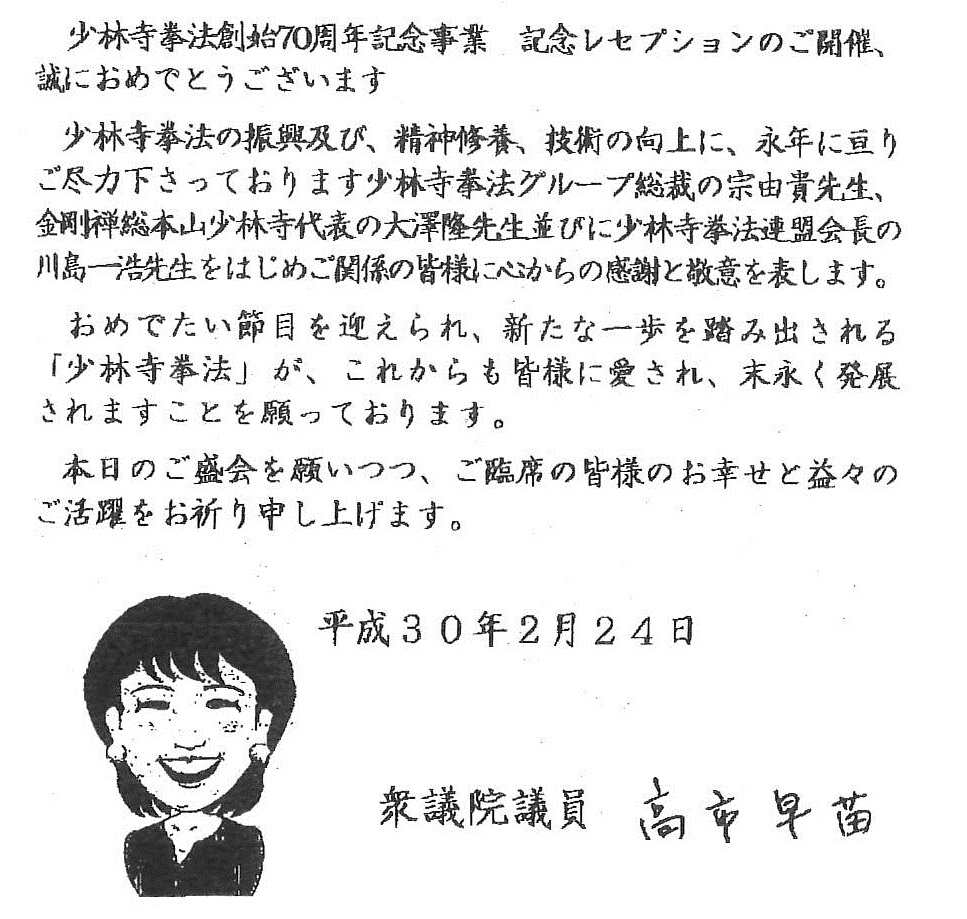 少林寺拳法創始70周年記念事業　記念レセプションのご開催、
誠におめでとうございます
少林寺拳法の振興及び、精神修養、技術の向上に、永年に亘り
ご尽力下さっております少林寺拳法グループ総裁の宗由貴先生、
金剛禅総本山少林寺代表の大澤隆先生並びに少林寺拳法連盟会長の
川島一浩先生をはじめご関係の皆様に心からの感謝と敬意を表します。
おめでたい節目を迎えられ、新たな一歩を踏み出される
「少林寺拳法」が、これからも皆様に愛され、末永く発展
されますことを願っております。
本日のご盛会を願いつつ、ご臨席の皆様のお幸せと益々の
ご活躍をお祈り申し上げます。
平成３０年２月２４日
衆議院議員　高市早苗